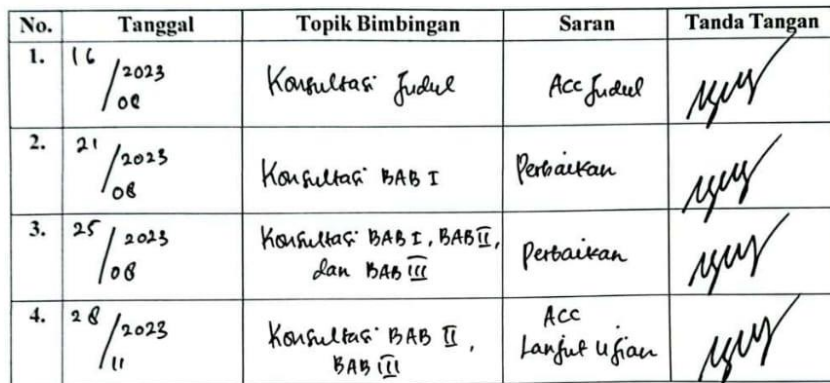 No. Tanggal Topik Bimbingan Saran Tanda Tangan
1. 16/08 2023 Konsultasi Judul Acc Judul
2. 21/08 2023 Konsultasi BAB I Perbaikan
3. 25/08 2023 Konsultasi BAB I, BAB II, Perbaikan
dan BAB III
4. 28/11 2023 Konsultasi BAB II, Acc
BAB III Lanjut Ujian